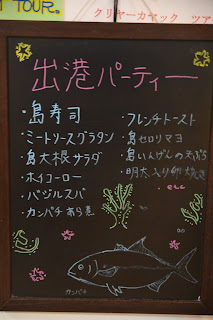 TOUR.
クリヤーカヤック ツア
出港パーティー
・島寿司
・ミートソースグラタン
・島大根サラダ
・ホイコーロー
・バジルスパ
・カンパチあら煮
・フレンチトースト
・島セロリマヨ
・島いんげんの天ぷら
・明太入り卵焼き
etc
カンパチ